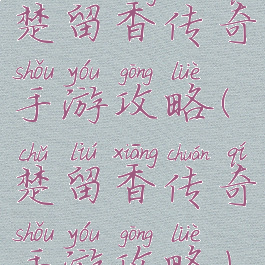 楚留香传奇
shǒu yóu gōng lüè
手游攻略(
chǔ liú xiāng chuán qí
楚留香传奇
shǒu yóu gōng lüè
手游攻略)